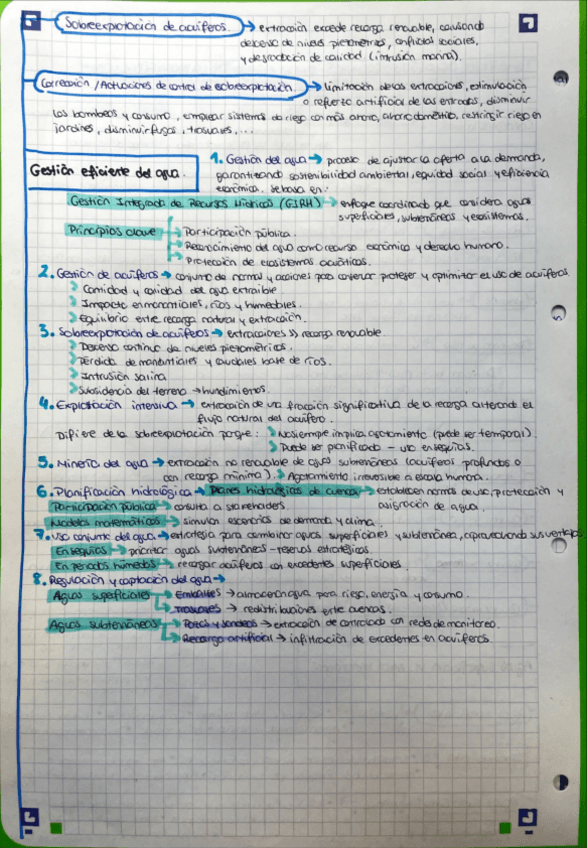 Sobreexplotación de acuíferos. → extracción excede recarga renovable, causando
descenso de niveles piezométricos, conflictos sociales,
y degradación de calidad (intrusión marina).
Corrección / Actuaciones de control de sobreexplotación → limitación de las extracciones, estimulación
o refuerzo artificial de las entradas, disminuir
los bombeos y consumo, emplear sistemas de riego con más ahorro, ahorro doméstico, restringir riego en
jardines, disminuir fugas, trasvases, ...
Gestión eficiente del agua.
1. Gestión del agua → proceso de ajustar la oferta a la demanda,
garantizando sostenibilidad ambiental, equidad social y eficiencia
económica. Se basa en:
Gestión Integrada de Recursos Hídricos (GIRH) → enfoque coordinado que considera aguas
superficiales, subterráneas y ecosistemas.
Principios clave → Participación pública.
→ Reconocimiento del agua como recurso económico y derecho humano.
→ Protección de ecosistemas acuáticos.
2. Gestión de acuíferos → conjunto de normas y acciones para conservar proteger y optimizar el uso de acuíferos.
Cantidad y calidad del agua extraíble.
Impacto en manantiales, ríos y humedales.
Equilibrio entre recarga natural y extracción.
3. Sobreexplotación de acuíferos → extracciones >> recarga renovable
Descenso continuo de niveles piezométricos.
Pérdida de manantiales y caudales base de ríos.
Intrusión salina
Subsidencia del terreno → hundimientos.
4. Explotación intensiva → extracción de una fracción significativa de la recarga alterando el
flujo natural del acuífero.
Difiere de la sobreexplotación porque: No siempre implica agotamiento (puede ser temporal)
Puede ser planificado – uso en sequías.
5. Minería del agua → extracción no renovable de aguas subterráneas (acuíferos profundos o
con recarga mínima). Agotamiento irreversible a escala humana.
6. Planificación hidrológica → Planes hidrológicos de cuenca → establecen normas de uso, protección y
asignación de agua.
Participación pública → consulta a stakeholders
Modelos matemáticos → simulan escenarios de demanda y clima.
7. Uso conjunto del agua → estrategia para combinar aguas superficiales y subterránea, aprovechando sus ventajas
En sequías → priorizar aguas subterráneas – reservas estratégicas.
En periodos húmedos → recargar acuíferos con excedentes superficiales.
8. Regulación y captación del agua →
Aguas superficiales → Embalses → almacenan agua para riego, energía y consumo.
→ Trasvases → redistribuciones entre cuencas.
Aguas subterráneas → Pozos y sondeos → extracción de controlada con redes de monitoreo.
→ Recarga artificial → infiltración de excedentes en acuíferos.